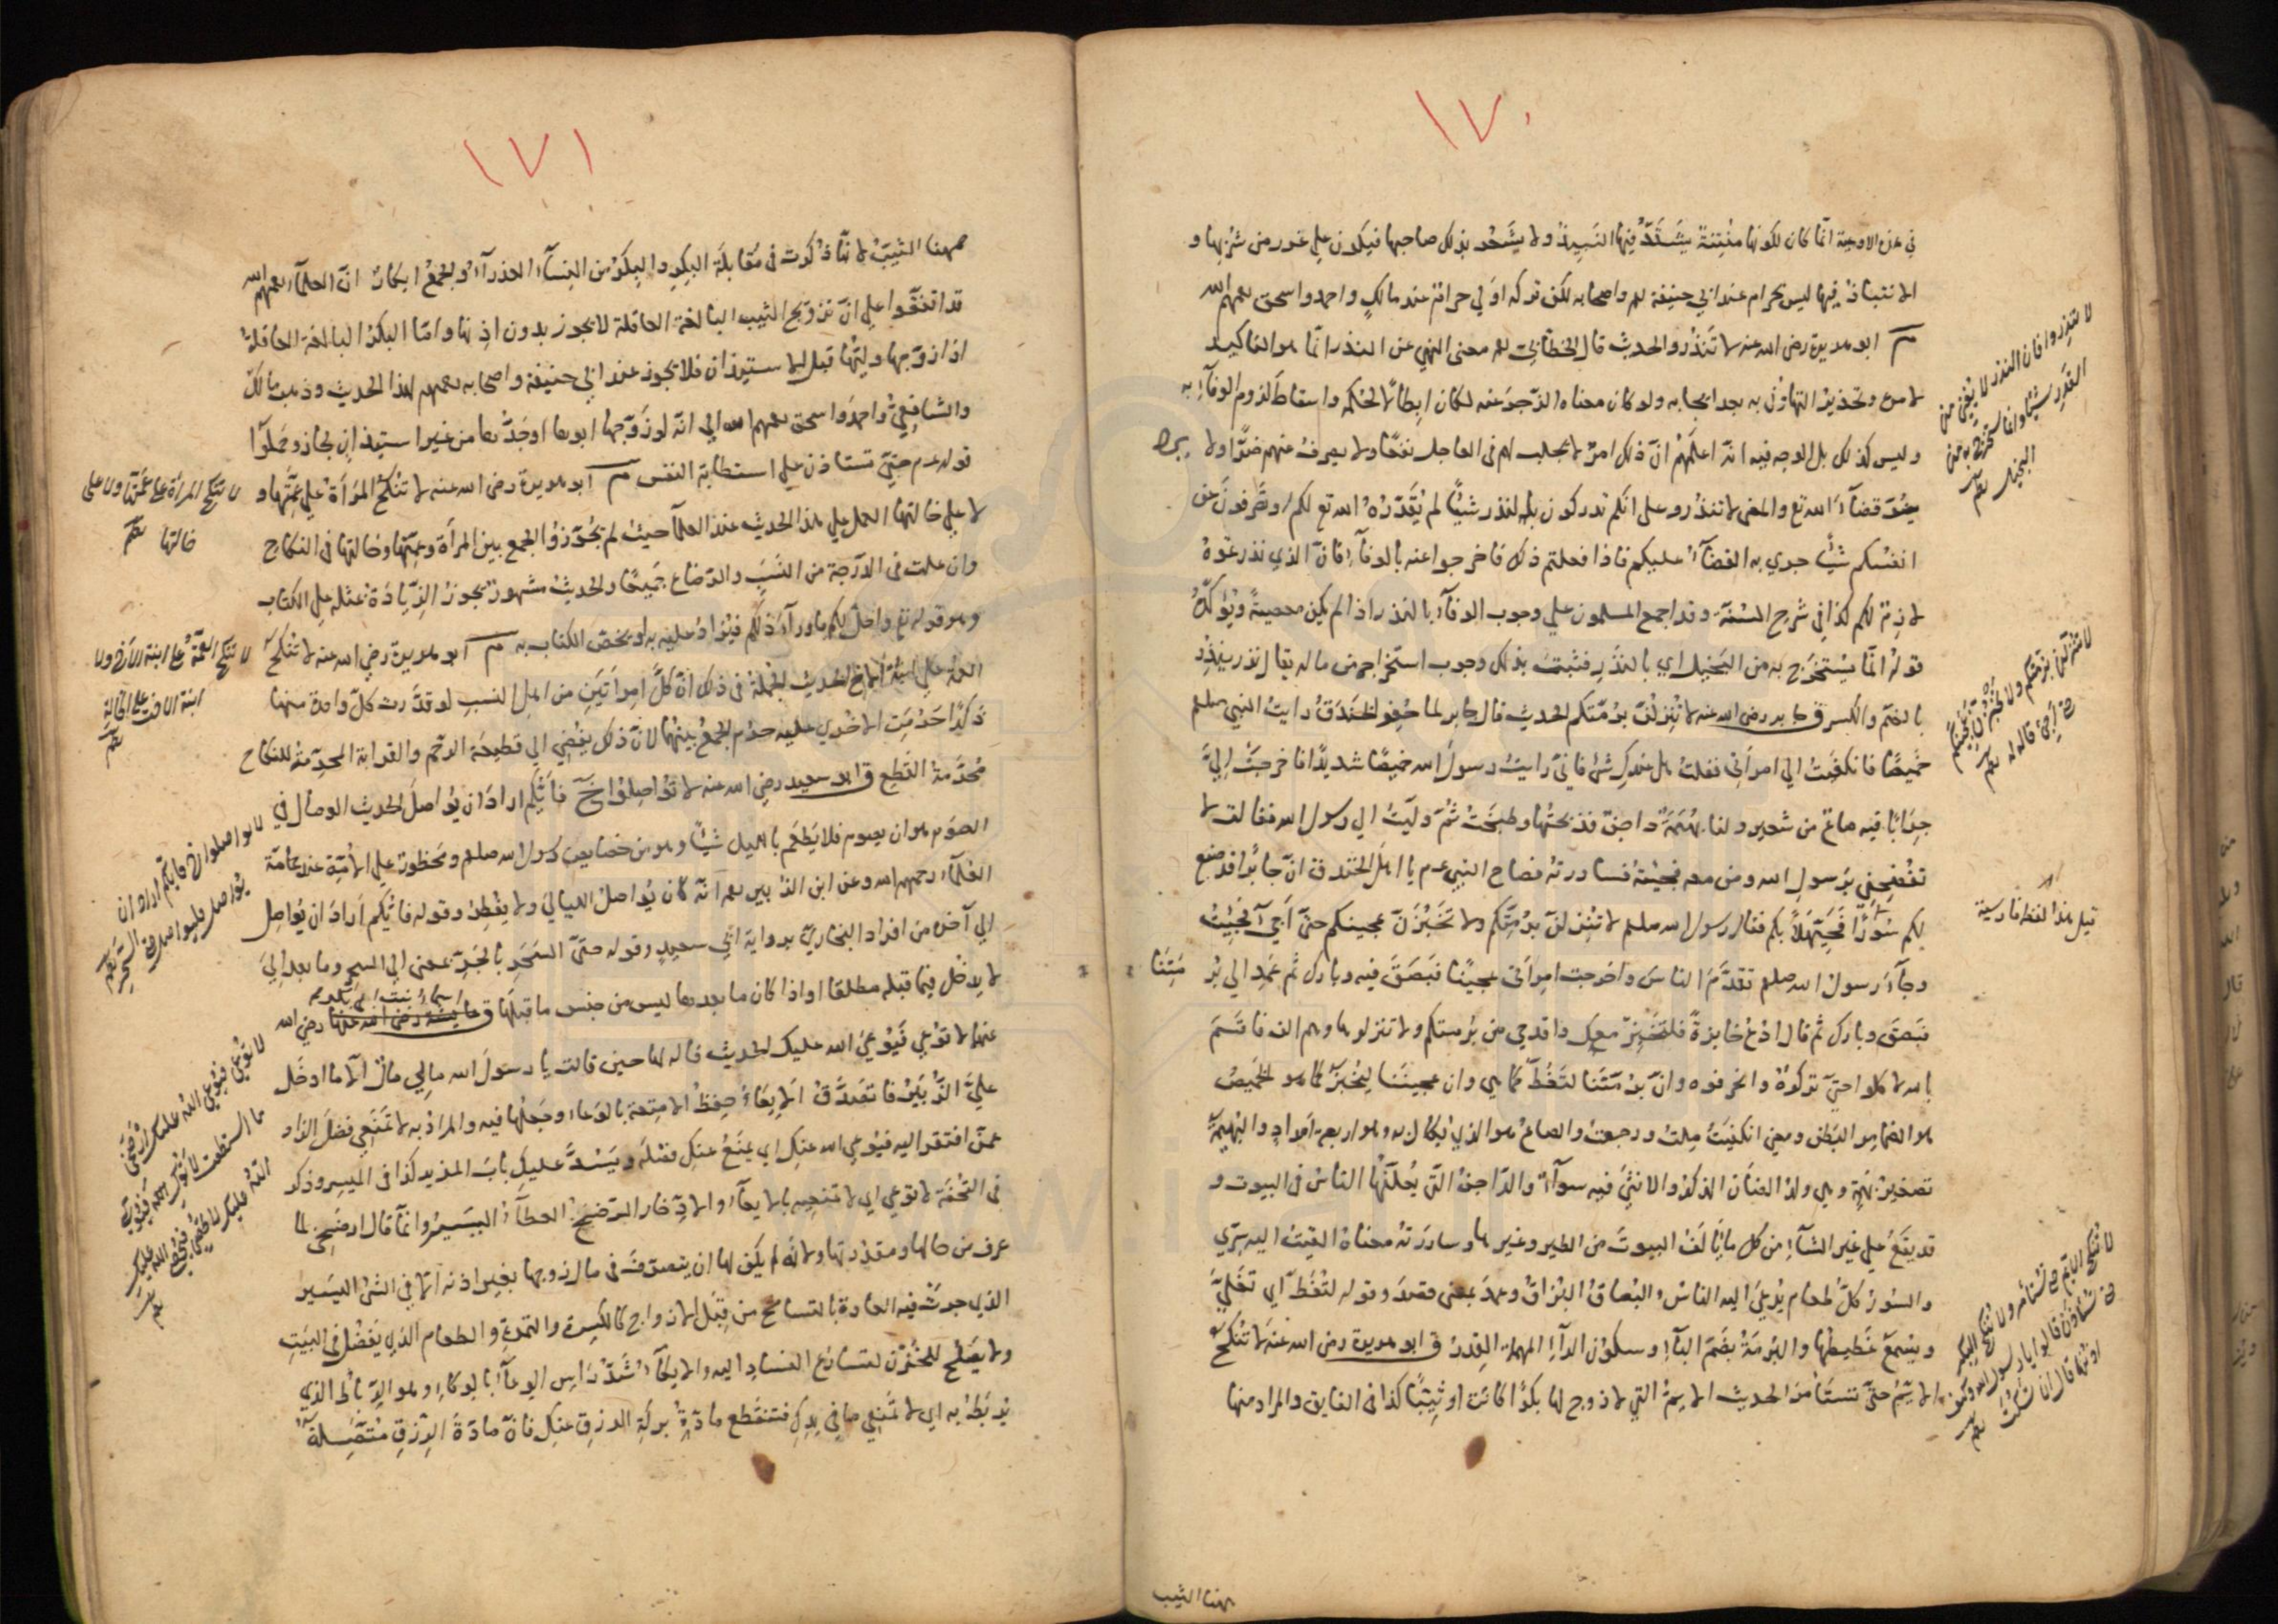 ١٧٠
في هذه الاوعية انما كان لكونها منتنة يشتد فيها النبيذ ولا يشعر بذلك صاحبها فيكون على غرر من شربها و
الانتباذ فيها ليس بحرام عند ابي حنيفة رحم واصحابه لكن تركه اولى حرام عند مالك واحمد واسحق رحمهم الله
م ابو هريرة رضي الله عنه لا تنذروا الحديث قال الخطابي رحم معنى النهي عن النذر انما هو التاكيد
لامره وتحذير التهاون به بعد ايجابه ولو كان معناه الزجر عنه لكان ابطالا لحكمه واسقاط لزوم الوفاء به
وليس كذلك بل الوجه فيه انه اعلمهم ان ذلك امر لا يجلب لهم في العاجل نفعا ولا يصرف عنهم ضرا ولا يرد
قضاء الله تع والمعنى لا تنذروا على انكم تدركون بالنذر شيئا لم يقدره الله تع لكم او تصرفون عن
انفسكم شيئا جرى به القضاء عليكم فاذا فعلتم ذلك فاخرجوا عنه بالوفاء فان الذي نذرتموه
لازم لكم كذا في شرح السنة وقد اجمع المسلمون على وجوب الوفاء بالنذر اذا لم يكن معصية ويؤكد
قوله انما يستخرج به من البخيل اي بالنذر فثبت بذلك وجوب استخراجه من ماله يقال نذر ينذر
بالضم والكسر ق جابر رضي الله عنه لا تنزلن برمتكم الحديث قال جابر لما حفر الخندق رايت النبي صلعم
خميصا فانكفيت الى امراتي فقلت هل عندك شئ فاني رايت رسول الله خميصا شديدا فاخرجت الي
جرابا فيه صاع من شعير ولنا بهيمة داجن فذبحتها وطبخت ثم وليت الى رسول الله فقالت لا
تفضحني برسول الله ومن معه فجيئته فساررته فصاح النبي عم يا اهل الخندق ان جابرا قد صنع
لكم سورا فحيهلا بكم فقال رسول الله صلعم لا تنزلن برمتكم ولا تخبزن عجينكم حتى اجئ فجيت
وجاء رسول الله صلعم تقدم الناس واخرجت امراتي عجينا فبصق فيه وبارك ثم عمد الى بر متنا
فبصق وبارك ثم قال ادع خابزة فلتخبز معك واقدحي من برمتكم ولا تنزلوها وهم الف فاقسم
بالله لاكلوا حتى تركوه وانحرفوه وان برمتنا لتغط كما هي وان عجيننا ليخبز كما هو الخميص
هو الضامر البطن ومعنى انكفيت ملت ورجعت والصاع هو الذي يكال به وهو اربعة امداد والبهيمة
تصغير بهمة وهي ولد الضان الذكر والانثى فيه سواء والداجن التي يعلفها الناس في البيوت و
قد يقع على غير الشاء من كل ما يالف البيوت من الطير وغيرها وساررته معناه القيت اليه سري
والسور كل طعام يدعى اليه الناس والبصاق البزاق وعمد بمعنى قصد وقوله لتغط اي تغلي
ويسمع غطيطها والبرمة بضم الباء وسكون الراء المهملة القدر ق ابو هريرة رضي الله عنه لا تنكح
الايم حتى تستامر الحديث الايم التي لا زوج لها بكرا كانت او ثيبا كذا في الفايق والمراد منها
ههنا الثيب
لا تنذروا فان النذر لا يغني من
القدر شيئا وانما يستخرج به من
البخيل
لا تنزلن برمتكم ولا تخبزن عجينكم
حتى اجئ قاله له
قيل هذا لفظ فارسية
لا تنكح الايم حتى تستامر ولا تنكح البكر
حتى تستاذن قالوا يا رسول الله وكيف
اذنها قال ان تسكت
١٧١
ههنا الثيب لانها ذكرت في مقابلة البكر والبكر من النساء العذراء والجمع ابكار ان العلماء رحمهم الله
قد اتفقوا على ان تزويج الثيب البالغة العاقلة لا يجوز بدون اذنها واما البكر البالغة العاقلة
اذا زوجها وليها قبل الاستيذان فلا يجوز عند ابي حنيفة واصحابه رحمهم لهذا الحديث وذهب مالك
والشافعي واحمد واسحق رحمهم الله الى انه لو زوجها ابوها او جدها من غير استيذان لجاز وحملوا
قوله عم حتى تستاذن على استطابة النفس م ابو هريرة رضي الله عنه لا تنكح المراة على عمتها و
لا على خالتها العمل على هذا الحديث عند العلماء حيث لم يجوزوا الجمع بين المراة وعمتها وخالتها في النكاح
وان علت في الدرجة من النسب والرضاع جميعا والحديث مشهور يجوز الزيادة بمثله على الكتاب
وهو قوله تع واحل لكم ما وراء ذلكم فيزاد عليه به او يخص الكتاب به م ابو هريرة رضي الله عنه لا تنكح
العمة على ابنة الاخ الحديث الجملة في ذلك ان كل امراتين من اهل النسب لو قدرت كل واحدة منهما
ذكرا حرمت الاخرى عليه حرم الجمع بينهما لان ذلك يفضي الى قطيعة الرحم والقرابة المحرمة للنكاح
محرمة القطع ق ابو سعيد رضي الله عنه لا تواصلوا خ فايكم اراد ان يواصل الحديث الوصال في
الصوم هو ان يصوم فلا يطعم بالليل شيئا وهو من خصايص رسول الله صلعم ومحظور على الامة عند عامة
العلماء رحمهم الله وعن ابن الزبير رحم انه كان يواصل الليالي ولا يفطر وقوله فايكم اراد ان يواصل
الى آخره من افراد البخاري برواية ابي سعيد وقوله حتى السحر بالجر بمعنى الى السحر وما بعد الى
لا يدخل فيما قبله مطلقا او اذا كان ما بعدها ليس من جنس ما قبلها ق اسماء بنت ابي بكر رضي الله
عنها لا توعي فيوعي الله عليك الحديث قاله لها حين قالت يا رسول الله مالي مال الا ما ادخل
علي الزبير فاتصدق الايعاء حفظ الامتعة بالوعاء وجعلها فيه والمراد به لا تمنعي فضل الزاد
عمن افتقر اليه فيوعي الله عنك اي يمنع عنك فضله ويسد عليك باب المزيد كذا في الميسر وذكر
في التحفة لا توعي اي لا تمنعيه بالايعاء والادخار الرضخ العطاء اليسير وانما قال ارضخي لما
عرف من حالها ومقدرتها ولانه لم يكن لها ان يتصرف في مال زوجها بغير اذنه الا في الشئ اليسير
الذي جرت فيه العادة بالتسامح من قبل الازواج كالكسرة والتمرة والطعام الذي يفضل في البيت
ولا يصلح للخزن لتسارع الفساد اليه والايكاء شد راس الوعاء بالوكاء وهو الرباط الذي
يربط به اي لا تمنعي ما في يدك فتنقطع مادة بركة الرزق عنك فان مادة الرزق متصلة
لا تنكح المراة على عمتها ولا على
خالتها
لا تنكح العمة على ابنة الاخ ولا
ابنة الاخت على الخالة
لا تواصلوا فايكم اراد ان
يواصل فليواصل حتى السحر
لا توعي فيوعي الله عليك ارضخي
ما استطعت لا توكي فيوكى
عليك لا تحصي فيحصي الله عليك